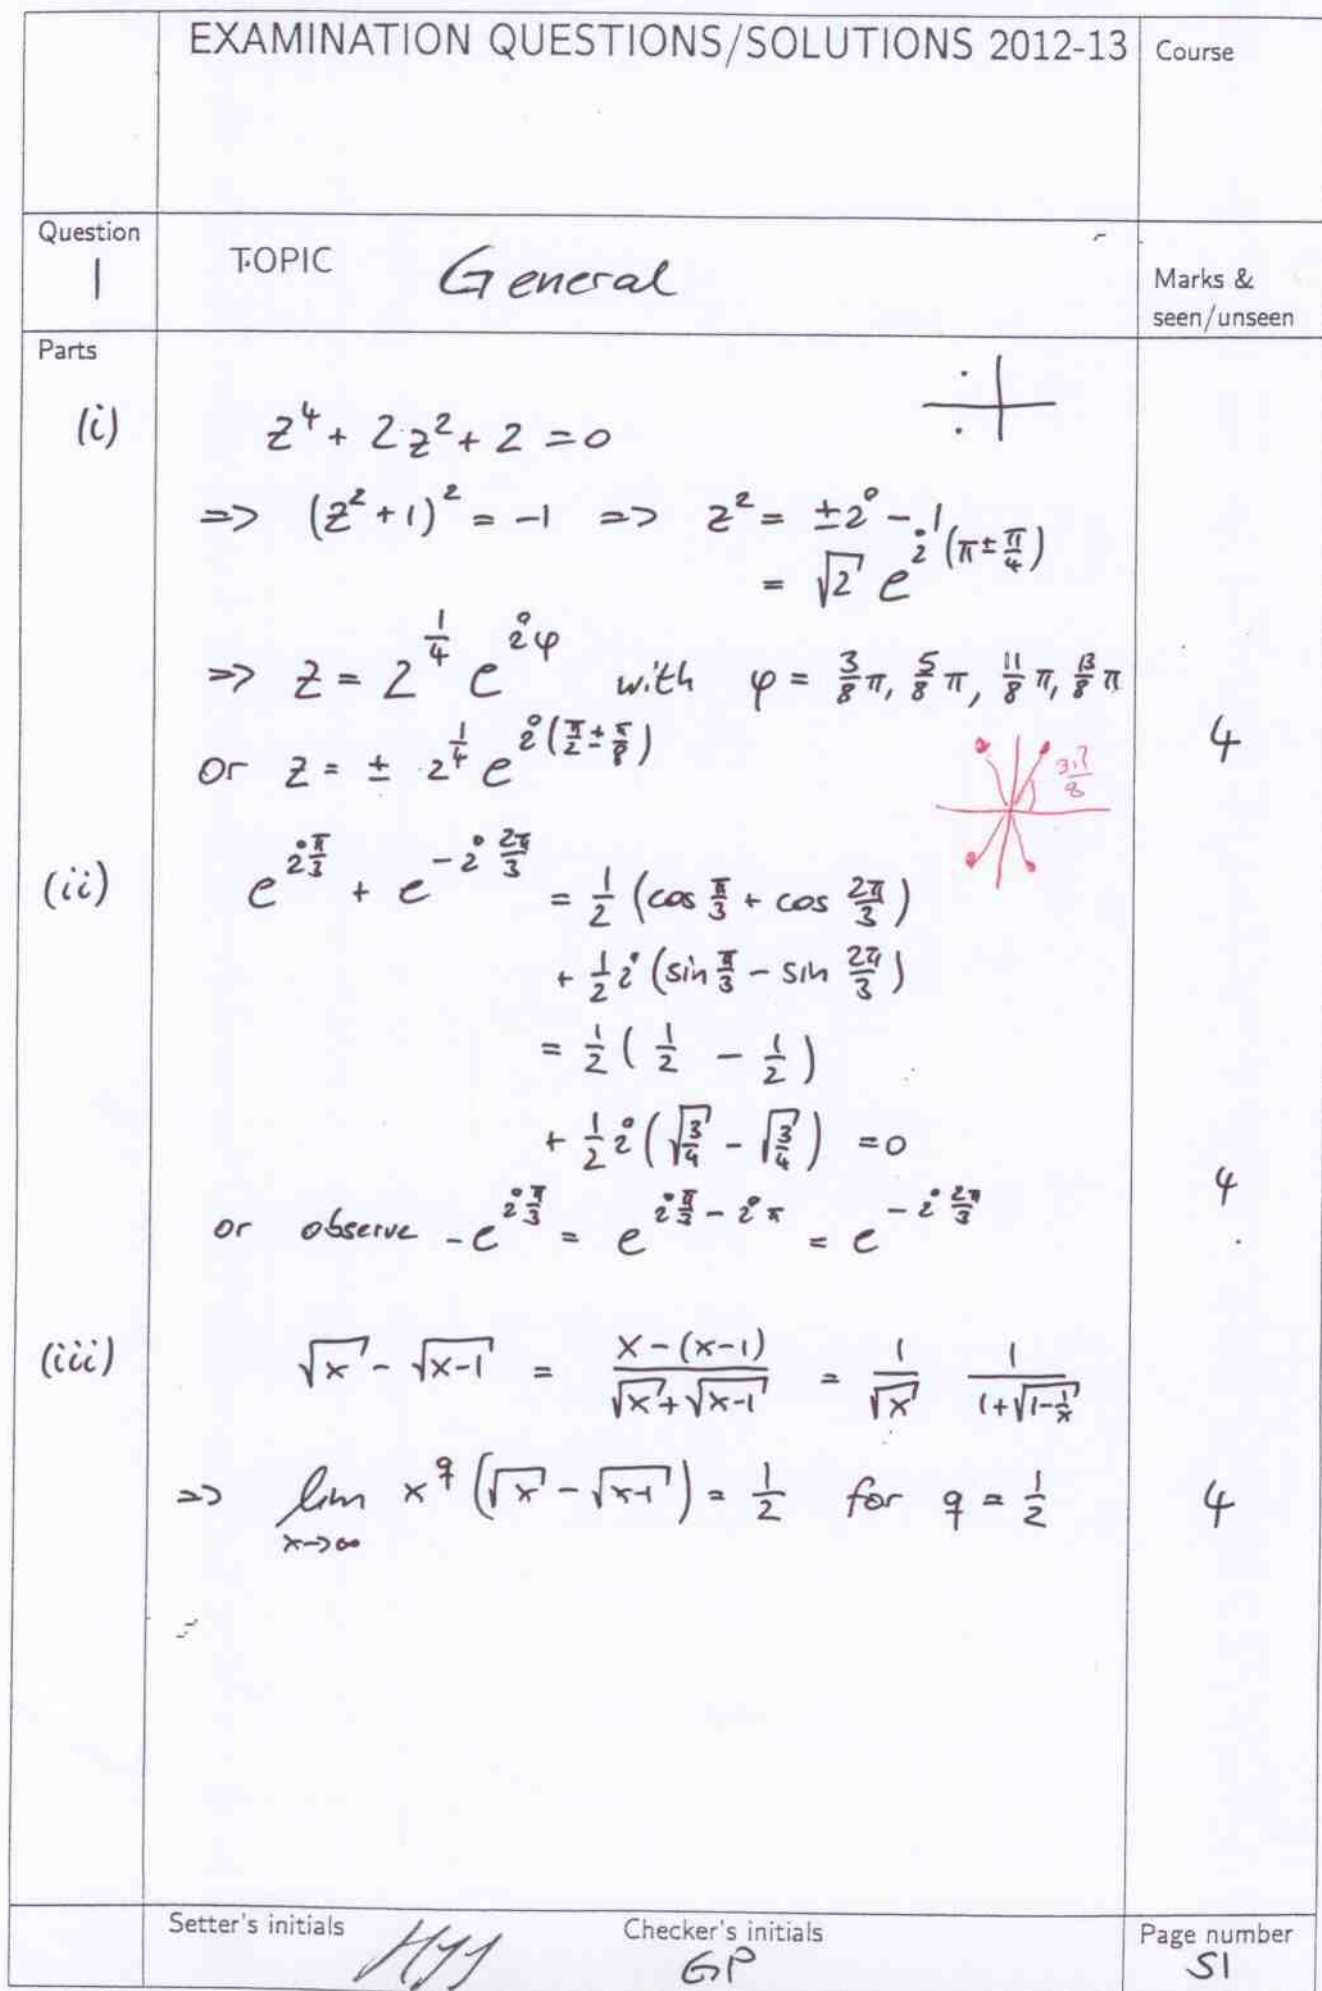 EXAMINATION QUESTIONS/SOLUTIONS 2012-13 Course
Question
1
TOPIC General
Marks &
seen/unseen
Parts
(i) z⁴ + 2z² + 2 = 0
=> (z² + 1)² = -1 => z² = ±i - 1
= √2 e^{i(π±π/4)}
=> z = 2^{1/4} e^{iφ} with φ = 3/8 π, 5/8 π, 11/8 π, 13/8 π
4
or z = ± 2^{1/4} e^{i(π/2 ± π/8)}
3π/8
(ii) e^{iπ/3} + e^{-i2π/3} = 1/2 (cos π/3 + cos 2π/3)
+ 1/2 i (sin π/3 - sin 2π/3)
= 1/2 (1/2 - 1/2)
+ 1/2 i (√(3/4) - √(3/4)) = 0
4
or observe -e^{iπ/3} = e^{iπ/3 - iπ} = e^{-i2π/3}
(iii) √x - √(x-1) = (x-(x-1))/(√x+√(x-1)) = 1/√x 1/(1+√(1-1/x))
=> lim x→∞ x^q (√x - √(x-1)) = 1/2 for q = 1/2 4
Setter's initials
Checker's initials
GP
Page number
S1